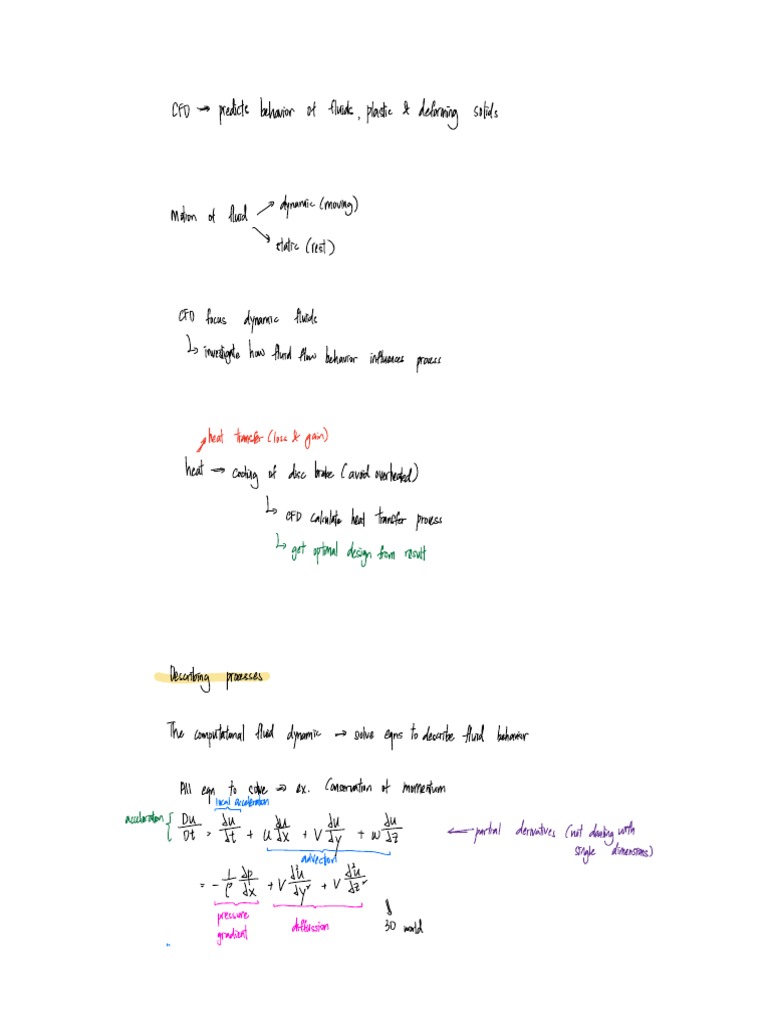 CFD → predicts behavior of fluids, plastic & deforming solids
Motion of fluid
dynamic (moving)
static (rest)
CFD focus dynamic fluids
↳ investigate how fluid flow behavior influences process
heat transfer (loss & gain)
heat → cooling of disc brake (avoid overheated)
↳ CFD calculate heat transfer process
↳ get optimal design from result
Describing processes
The computatonal fluid dynamic → solve eqns to describe fluid behavior
All eqn to solve → ex. Conservation of momentum
local acceleration
acceleration { Du/Dt = du/dt + u du/dx + v du/dy + w du/dz ← partial derivatives (not dealing with
single dimensions)
advection
= - 1/ρ dp/dx + v d²u/dy² + v d²u/dz²
pressure
gradient
diffussion
3D world